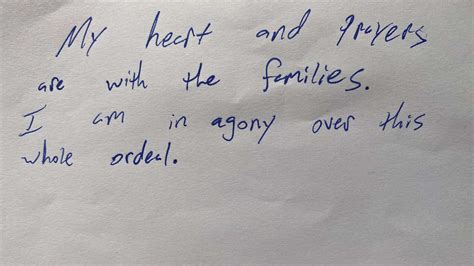 My heart and Prayers
are with the families.
I am in agony over this
whole ordeal.